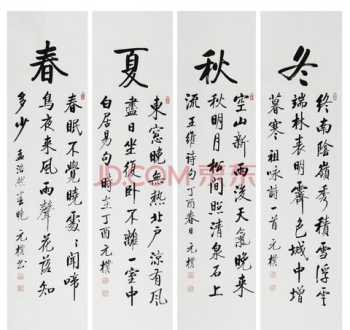 春
春眠不覺曉處處聞啼
鳥夜來風雨聲花落知
多少 孟浩然春曉 元樸書
夏
東窓晚無熱北户涼有風
盡日坐復卧不離一室中
白居易句 時在丁酉 元樸
秋
空山新雨後天氣晚來
秋明月松間照清泉石上
流 王維詩句 丁酉春日 元樸
冬
終南陰嶺秀積雪浮雲
端林表明霽色城中增
暮寒 祖詠詩一首 元樸